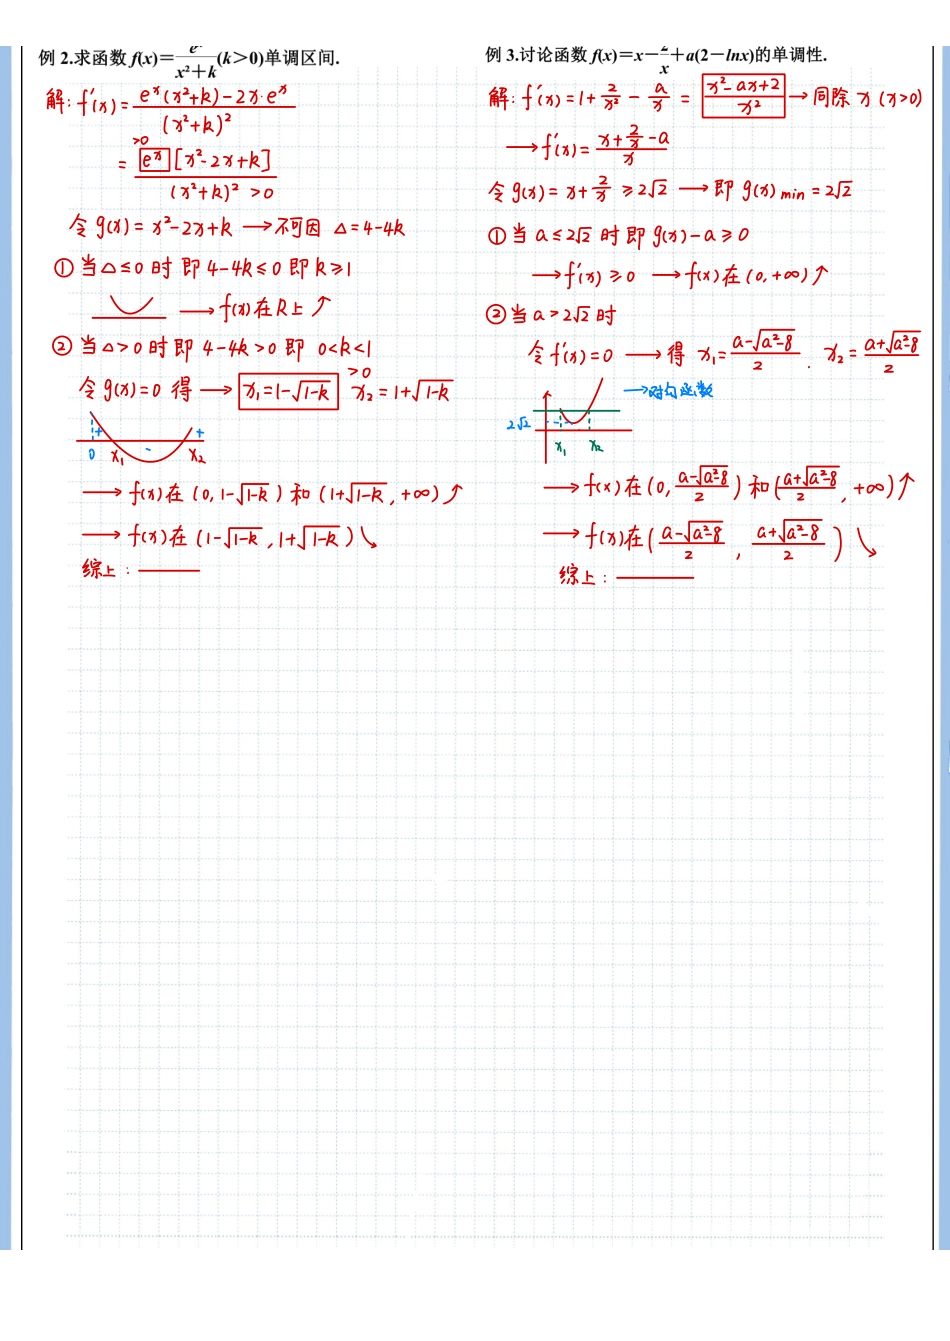 例 2.求函数 f(x)=eˣ/(x²+k)(k>0)单调区间.
解: f'(x)=eˣ(x²+k)-2x·eˣ/(x²+k)²
>0
=eˣ[x²-2x+k]/(x²+k)²>0
令 g(x)=x²-2x+k→不可因 Δ=4-4k
①当Δ≤0时 即4-4k≤0即k≥1
→f(x)在R上↑
②当Δ>0时即4-4k>0即 0<k<1
>0
令g(x)=0 得→x₁=1-√1-k x₂=1+√1-k
+ - +
0 x₁ x₂
→f(x)在(0,1-√1-k)和(1+√1-k,+∞)↑
→f(x)在(1-√1-k,1+√1-k)↘
综上:
例 3.讨论函数 f(x)=x-2/x+a(2-lnx)的单调性.
解: f'(x)=1+2/x²-a/x=x²-ax+2/x²→同除x(x>0)
→f'(x)=x+2/x-a/x
令g(x)=x+2/x≥2√2→即g(x)min=2√2
①当a≤2√2时即g(x)-a≥0
→f'(x)≥0→f(x)在(0,+∞)↑
②当a>2√2时
令f'(x)=0→得 x₁=a-√a²-8/2. x₂=a+√a²-8/2
→对勾函数
2√2
x₁ x₂
→f(x)在(0,a-√a²-8/2)和(a+√a²-8/2,+∞)↑
→f(x)在(a-√a²-8/2,a+√a²-8/2)↘
综上: